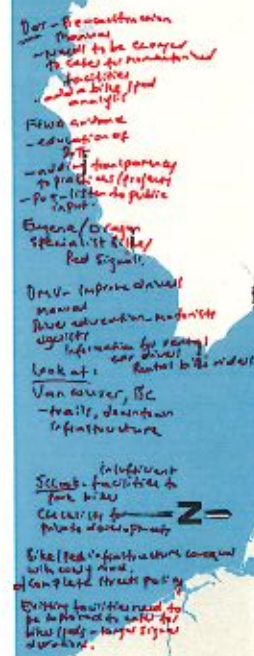 DOT - Preconstruction
Manual
- needs to be changed
to cater for nonmotorized
facilities
- add a bike/ped
analysis
FHWA guidance
- education of
- adding transparency
to practices/projects
- listen to public
input.
Eugene/Oregon
Specialist Bike/
Ped Signals.
DMV - Improve drivers
manual
education - motorists
cyclists
Information by rental
car drivers
Rental bike riders
Look at:
Vancouver, BC
- trails, downtown
infrastructure
insufficient
facilities to
park bikes
Checklist for
private developments
N
Bike/ped infrastructure
with every road.
Complete streets policy
Existing facilities need to
be to cater for
bikes/peds - longer signal
durations.